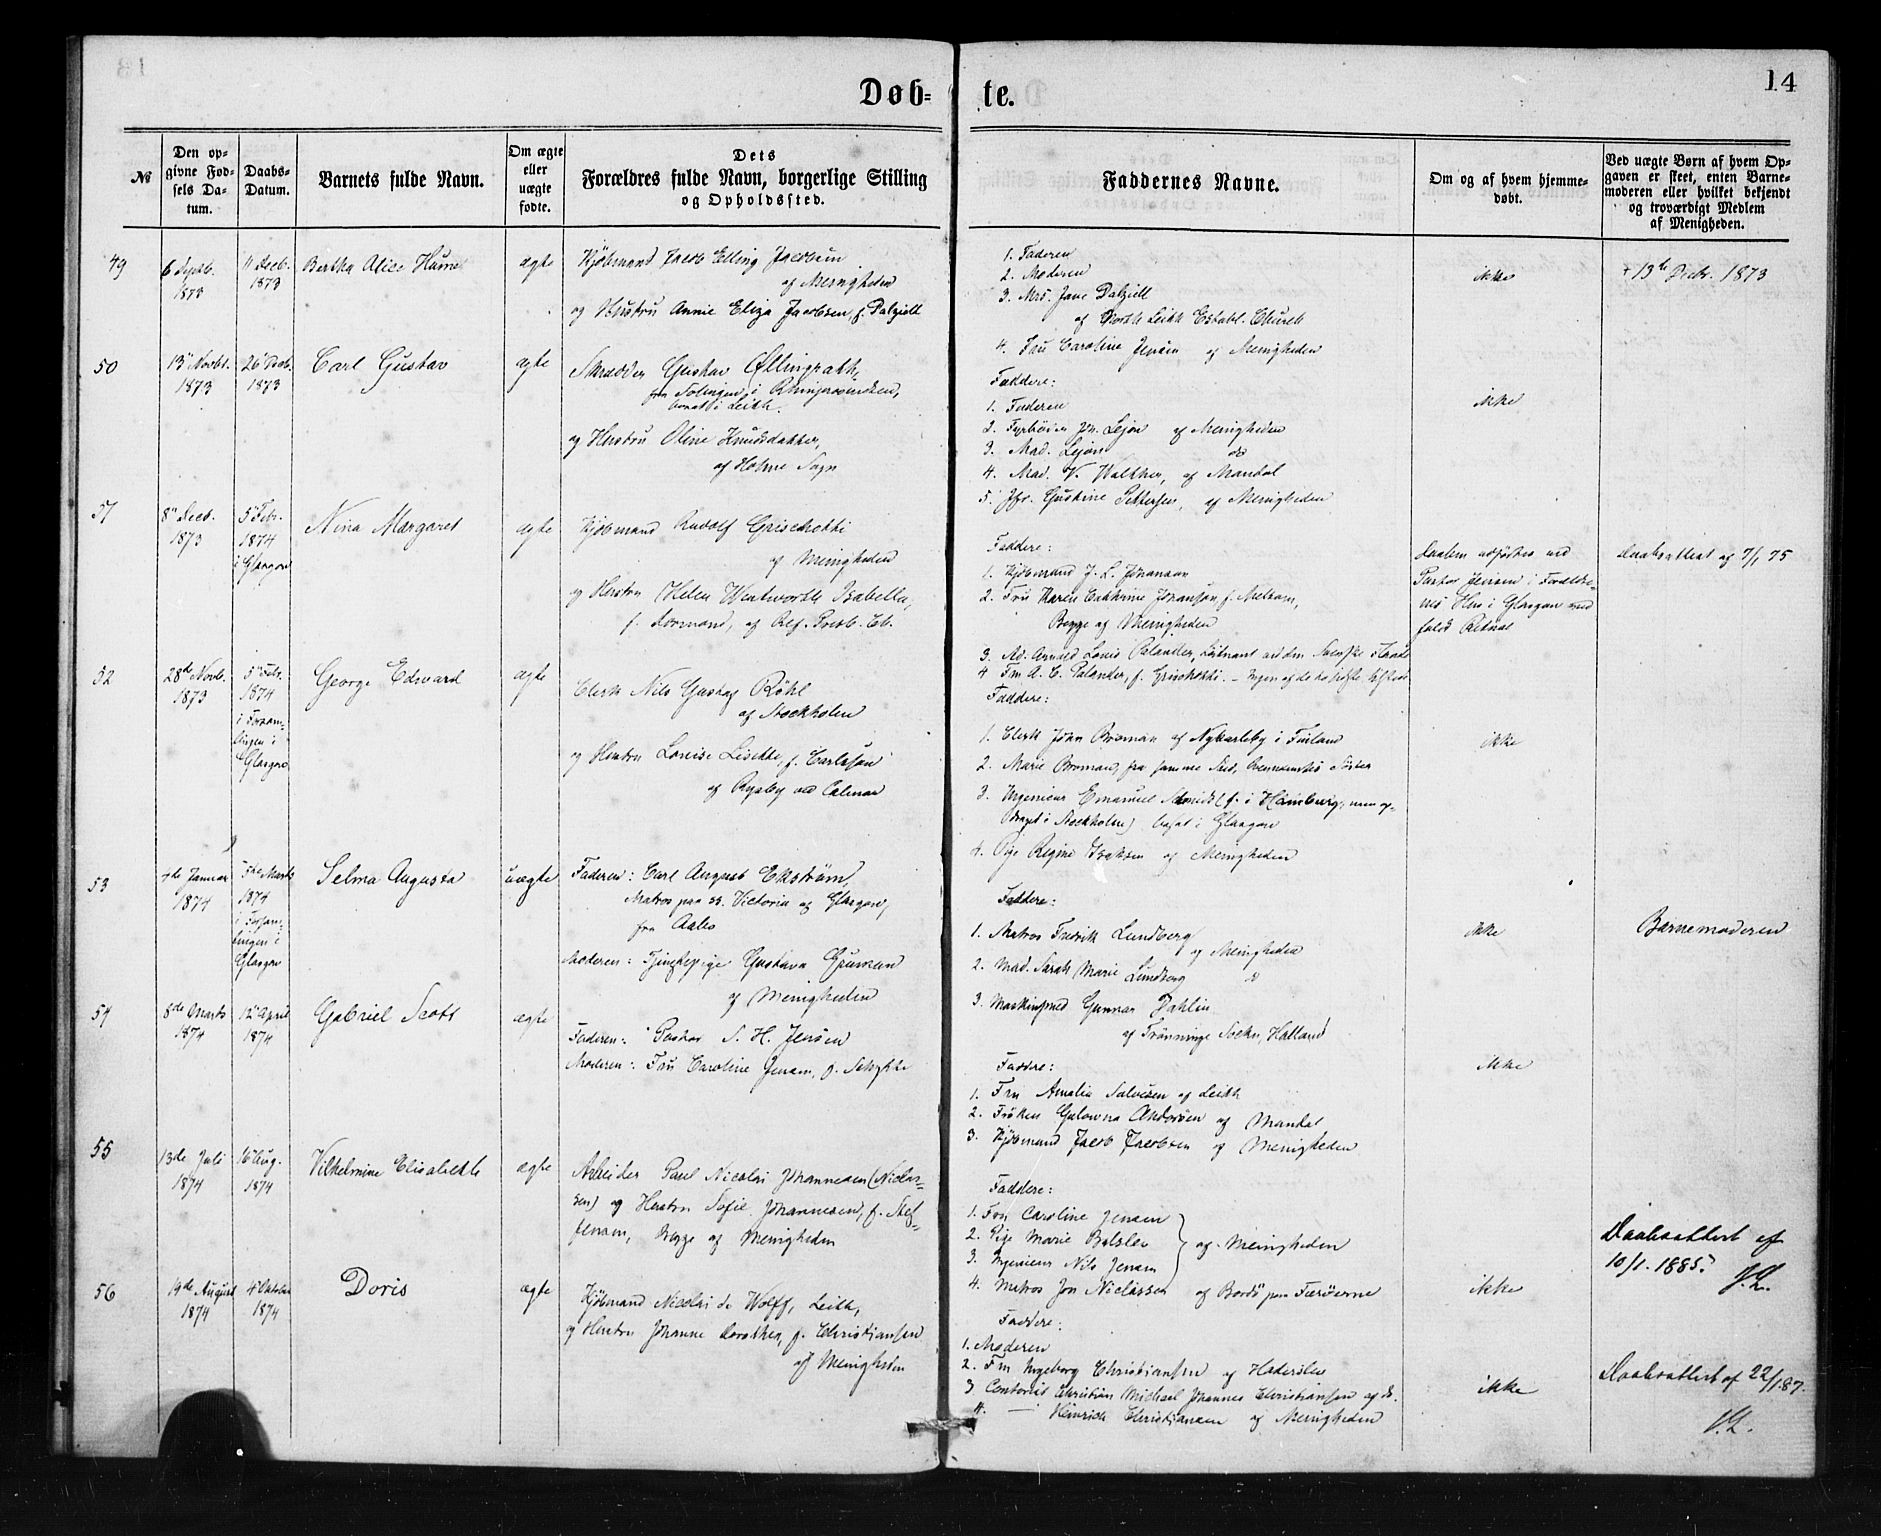 Døb=
te.
14
№
Den op-
givne Fød-
sels Da-
tum.
Daabs-
Datum.
Barnets fulde Navn.
Om ægte
eller
uægte
fødte.
Dets
Forældres fulde Navn, borgerlige Stilling
og Opholdssted.
Faddernes Navne.
Om og af hvem hjemme-
døbt.
Ved uægte Børn af hvem Op-
gaven er skeet, enten Barne-
moderen eller hvilket bekjendt
og troværdigt Medlem
af Menigheden.
49
6 Septb.
1873
11 Decb.
1873
Bertha Alice Hume
ægte
Kjøbmand Jacob Elling Jacobsen
af Menigheden
og Hustru Annie Eliza Jacobsen, f. Dalziell
1. Faderen
2. Moderen
3. Mrs. Jane Dalziell
af North Leith Establ. Church
4. Fru Caroline Jensen af Menigheden
ikke
† 13de Decbr. 1873
50
13 Novbr.
1873
26 Decb.
1873
Carl Gustav
ægte
Skrædder Gustav Øllingrath,
fra Solingen i Rhinprovindsen,
bosat i Leith.
og Hustru Oline Knudsdatter,
af Holme Sogn
Faddere:
1. Faderen
2. Fyrbøder Joh. Lejon af Menigheden
3. Mad. Lejon do
4. Mad. V. Walther, af Mandal
5. Jfr. Gustine Pettersen, af Menigheden
ikke
51
8 Decb.
1873
5 Febr.
1874
i Glasgow
Nina Margaret
ægte
Kjøbmand Rudolf Grischotti
af Menigheden
og Hustru Helen Wentworth Isabella,
f. Dormand, af Ref. Presb. Ch.
Faddere:
1. Kjøbmand J. L. Johansen
2. Fru Karen Cathrine Johansen, f. Melsom,
Begge af Menigheden
3. Ad. Arnold Louis Palander, Løitnant ved den Svenske Flaade
4 Fru A. C. Palander, f. Grischotti. – Ingen af de to sidste tilstede
Daaben udførtes ved
Pastor Jensen i Forældre-
nes Hus i Glasgow med
fuldt Ritual
Daabsattest af 7/1 75
52
28de Novb.
1873
5 Febr.
1874
i Forsam-
lingen i
Glasgow
George Edward
ægte
Clerk Nils Gustaf Röhl
af Stockholm
og Hustru Lovise Lisette, f. Carlsson
af Ryssby ved Calmar
Faddere:
1. Clerk John Broman af Nykarleby i Finland
2. Marie Broman, fra samme Sted, Svennemstes Søster
3. Ingeniør Emanuel Schmidt (f. i Hamburg, men op-
draget i Stockholm) bosat i Glasgow
4. Pige Regine Isaksen af Menigheden
ikke
53
7de Januar
1874
5te Marts
1874
i Forsam-
lingen i
Glasgow
Selma Augusta
uægte
Faderen: Carl August Ekström,
Matros paa ss. Victoria af Glasgow,
fra Aabo
Moderen: Tjenstepige Gustava Gruman
af Menigheden
Faddere:
1. Matros Fredrik Lundberg
af Menigheden
2. Mad. Sarah Marie Lundberg do
3. Maskinsmed Gunnar Dahlin
af Trönninge Socken, Halland
ikke
Barnemoderen
54
8de Marts
1874
12 April
1874
Gabriel Scott
ægte
Faderen: Pastor S. H. Jensen
Moderen: Fru Caroline Jensen, f. Schytte
Faddere:
1. Fru Amalia Salvesen af Leith
2. Frøken Gulowna Andorsen af Mandal
3. Kjøbmand Jacob Jacobsen af Menigheden
ikke
55
13de Juli
1874
16 Aug.
1874
Vilhelmine Elisabeth
ægte
Arbeider Paul Nicolai Johannesen (Niclas-
sen) og Hustru Sofie Johannesen, f. Stef-
fensen, Begge af Menigheden
Faddere:
1. Fru Caroline Jensen
2. Pige Marie Balslev
3. Ingeniør Nils Jensen
af Menigheden
4. Matros Jon Niclassen af Bordø paa Færøerne
ikke
Daabsattest af
10/1. 1885.
J.L.
56
19de August
1874
4 Oktober
1874
Doris
ægte
Kjøbmand Nicolai de Wolff, Leith,
og Hustru Johanne Dorothea, f. Christiansen
af Menigheden
Faddere:
1. Moderen
2. Fru Ingeborg Christiansen af Haderslev
3 Contorist Christian Michael Johannes Christiansen af do.
4. — Heinrich Christiansen af Menigheden
ikke
Daabsattest af 22/1.87.
J.L.